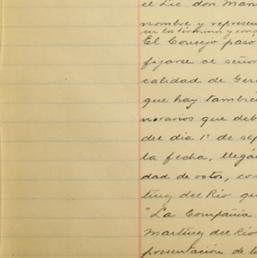 el Lic. don Man
nombre y represen
en los términos y con
El Consejo paso
fijarse al señor
calidad de Ger
que hay tambié
norarios que deb
del dia 1º de sep
la fecha, llegá
dad de votos, con
tinez del Rio que
"La Compañia
Martinez del Rio
presentacion de la